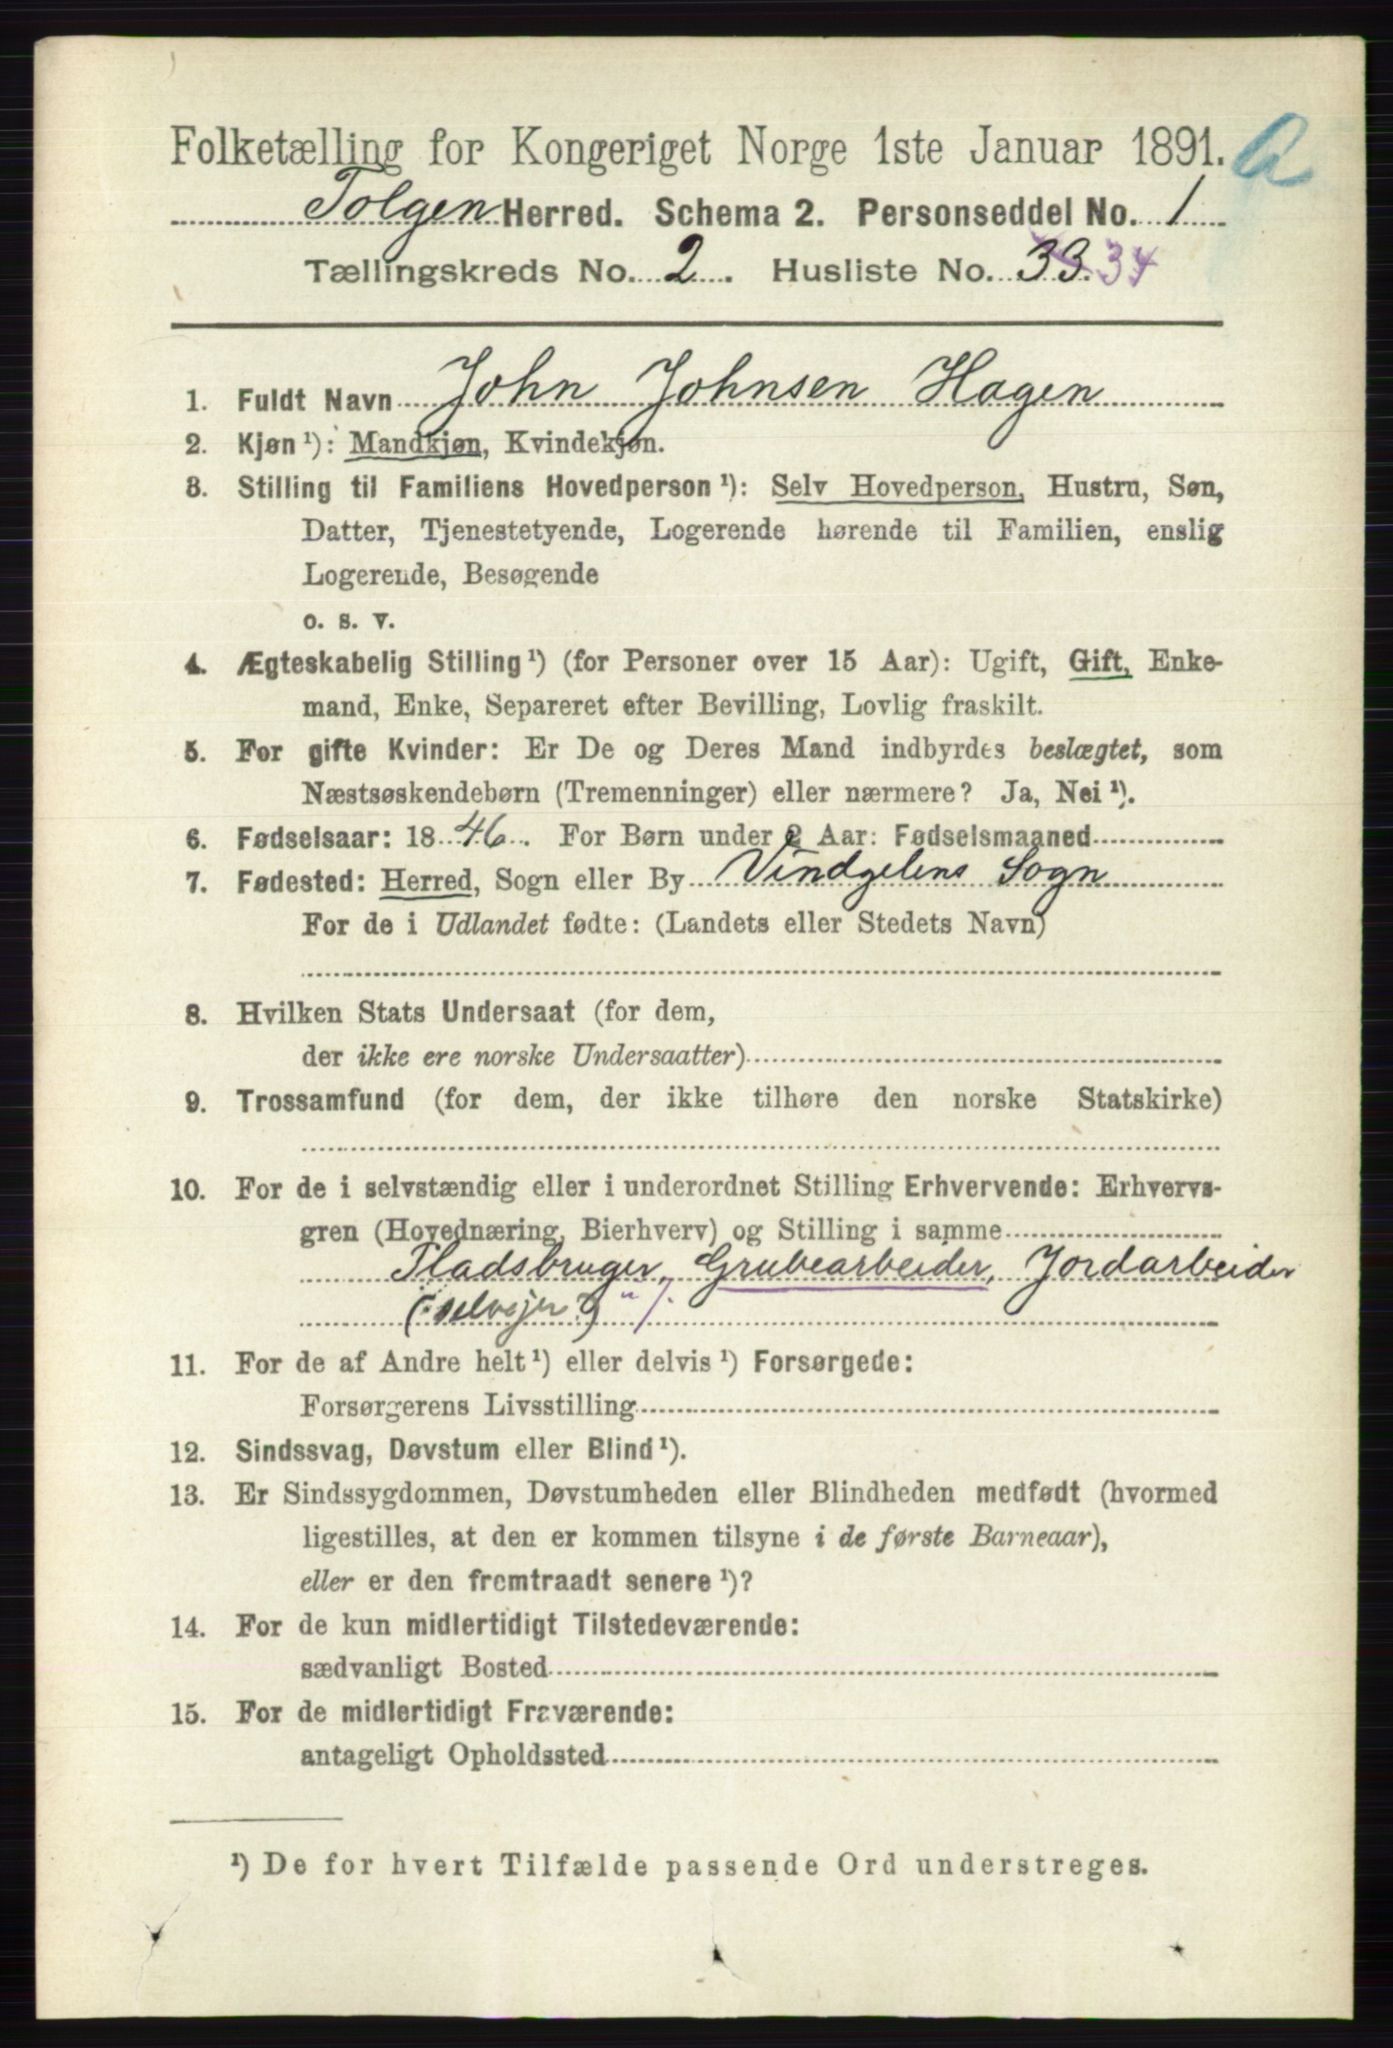 Folketælling for Kongeriget Norge 1ste Januar 1891. a
Tolgen Herred. Schema 2. Personseddel No. 1
Tællingskreds No. 2. Husliste No. 33. 34
1. Fuldt Navn John Johnsen Hagen
2. Kjøn ¹): Mandkjøn, Kvindekjøn.
3. Stilling til Familiens Hovedperson ¹): Selv Hovedperson, Hustru, Søn,
Datter, Tjenestetyende, Logerende hørende til Familien, enslig
Logerende, Besøgende
o. s. v.
4. Ægteskabelig Stilling ¹) (for Personer over 15 Aar): Ugift, Gift, Enke-
mand, Enke, Separeret efter Bevilling, Lovlig fraskilt.
5. For gifte Kvinder: Er De og Deres Mand indbyrdes beslægtet, som
Næstsøskendebørn (Tremenninger) eller nærmere? Ja, Nei ¹).
6. Fødselsaar: 1846. For Børn under 2 Aar: Fødselsmaaned
7. Fødested: Herred, Sogn eller By Vindgelens Sogn
For de i Udlandet fødte: (Landets eller Stedets Navn)
8. Hvilken Stats Undersaat (for dem,
der ikke ere norske Undersaatter)
9. Trossamfund (for dem, der ikke tilhøre den norske Statskirke)
10. For de i selvstændig eller i underordnet Stilling Erhvervende: Erhvervs-
gren (Hovednæring, Bierhverv) og Stilling i samme
Pladsbruger, Grubearbeider, Jordarbeider
(: selvejer?)
11. For de af Andre helt ¹) eller delvis ¹) Forsørgede:
Forsørgerens Livsstilling
12. Sindssvag, Døvstum eller Blind ¹).
13. Er Sindssygdommen, Døvstumheden eller Blindheden medfødt (hvormed
ligestilles, at den er kommen tilsyne i de første Barneaar),
eller er den fremtraadt senere ¹)?
14. For de kun midlertidigt Tilstedeværende:
sædvanligt Bosted
15. For de midlertidigt Fraværende:
antageligt Opholdssted
¹) De for hvert Tilfælde passende Ord understreges.